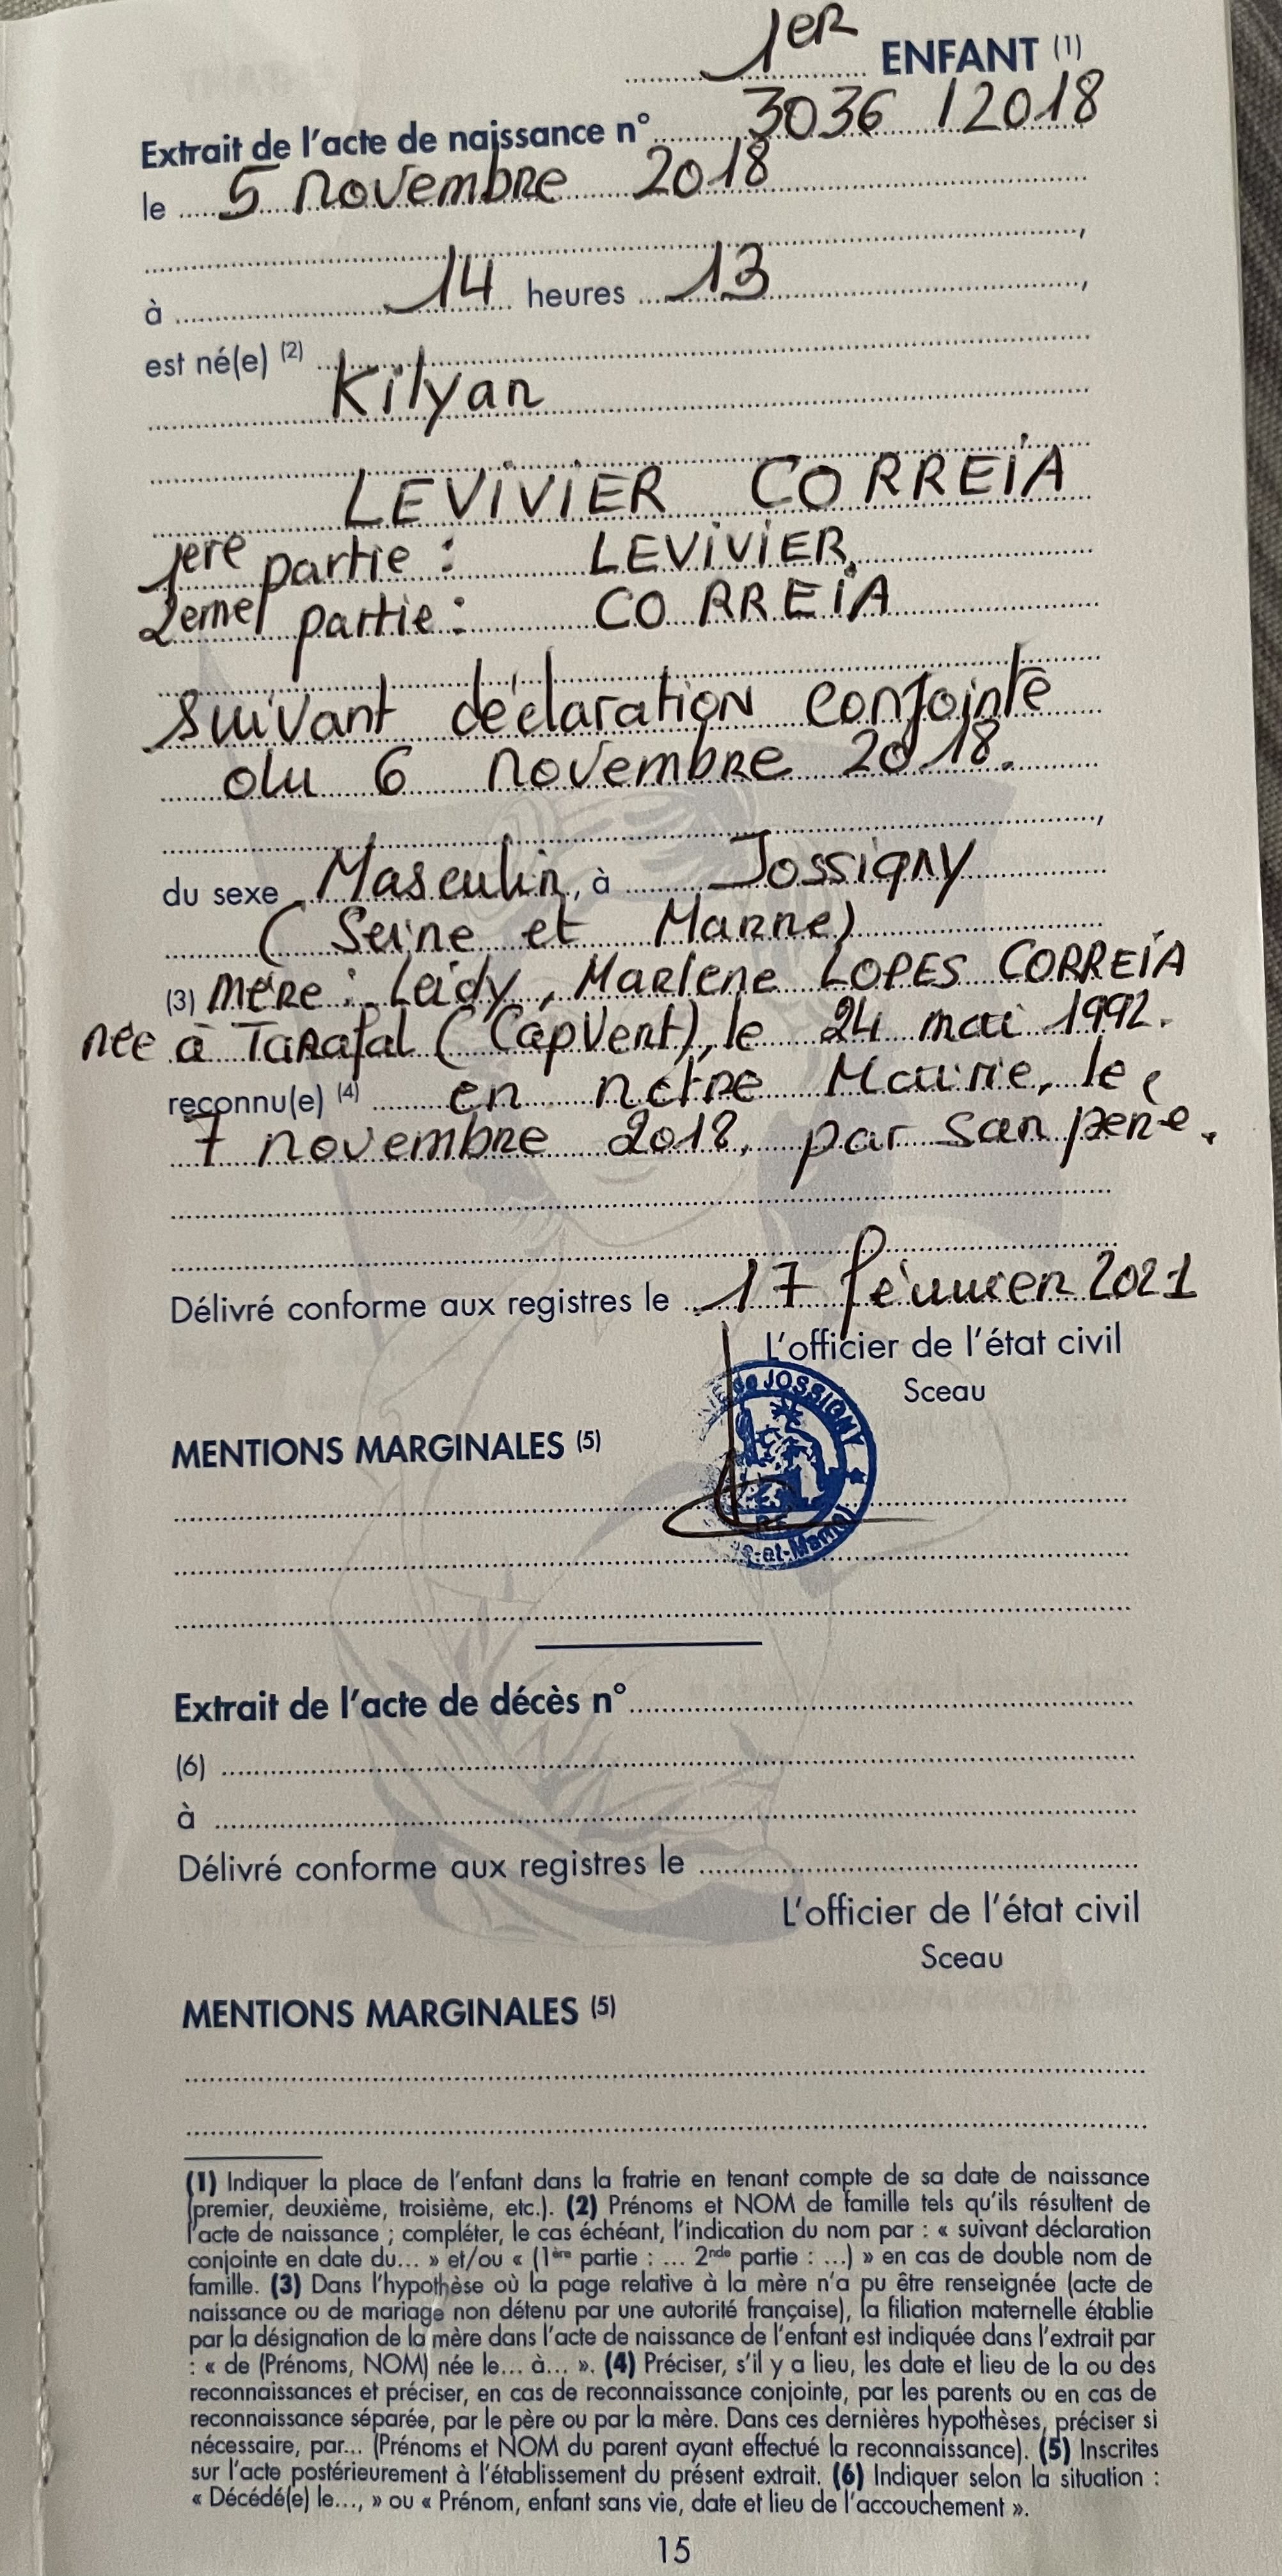 1ER ENFANT (1)
Extrait de l'acte de naissance n° 3036 / 2018
le 5 novembre 2018
,
à 14 heures 13 ,
est né(e) (2)
Kilyan
LEVIVIER CORREIA
1ere partie : LEVIVIER
2eme partie : CORREIA
suivant déclaration conjointe
du 6 novembre 2018.
,
du sexe Masculin, à Jossigny
(Seine et Marne)
(3) mère : Leidy, Marlene LOPES CORREIA
née à Tarafal (Cap Vert), le 24 mai 1992.
reconnu(e) (4) en notre Mairie, le
7 novembre 2018, par son père.
Délivré conforme aux registres le 17 février 2021
L'officier de l'état civil
Sceau
de JOSSIGNY
MENTIONS MARGINALES (5)
R.F.
-et-Marne)
Extrait de l'acte de décès n°
(6)
à
Délivré conforme aux registres le
L'officier de l'état civil
Sceau
MENTIONS MARGINALES (5)
(1) Indiquer la place de l'enfant dans la fratrie en tenant compte de sa date de naissance
(premier, deuxième, troisième, etc.). (2) Prénoms et NOM de famille tels qu'ils résultent de
l'acte de naissance ; compléter, le cas échéant, l'indication du nom par : « suivant déclaration
conjointe en date du... » et/ou « (1ère partie : ... 2nde partie : ...) » en cas de double nom de
famille. (3) Dans l'hypothèse où la page relative à la mère n'a pu être renseignée (acte de
naissance ou de mariage non détenu par une autorité française), la filiation maternelle établie
par la désignation de la mère dans l'acte de naissance de l'enfant est indiquée dans l'extrait par
: « de (Prénoms, NOM) née le... à... ». (4) Préciser, s'il y a lieu, les date et lieu de la ou des
reconnaissances et préciser, en cas de reconnaissance conjointe, par les parents ou en cas de
reconnaissance séparée, par le père ou par la mère. Dans ces dernières hypothèses, préciser si
nécessaire, par... (Prénoms et NOM du parent ayant effectué la reconnaissance). (5) Inscrites
sur l'acte postérieurement à l'établissement du présent extrait. (6) Indiquer selon la situation :
« Décédé(e) le..., » ou « Prénom, enfant sans vie, date et lieu de l'accouchement ».
15